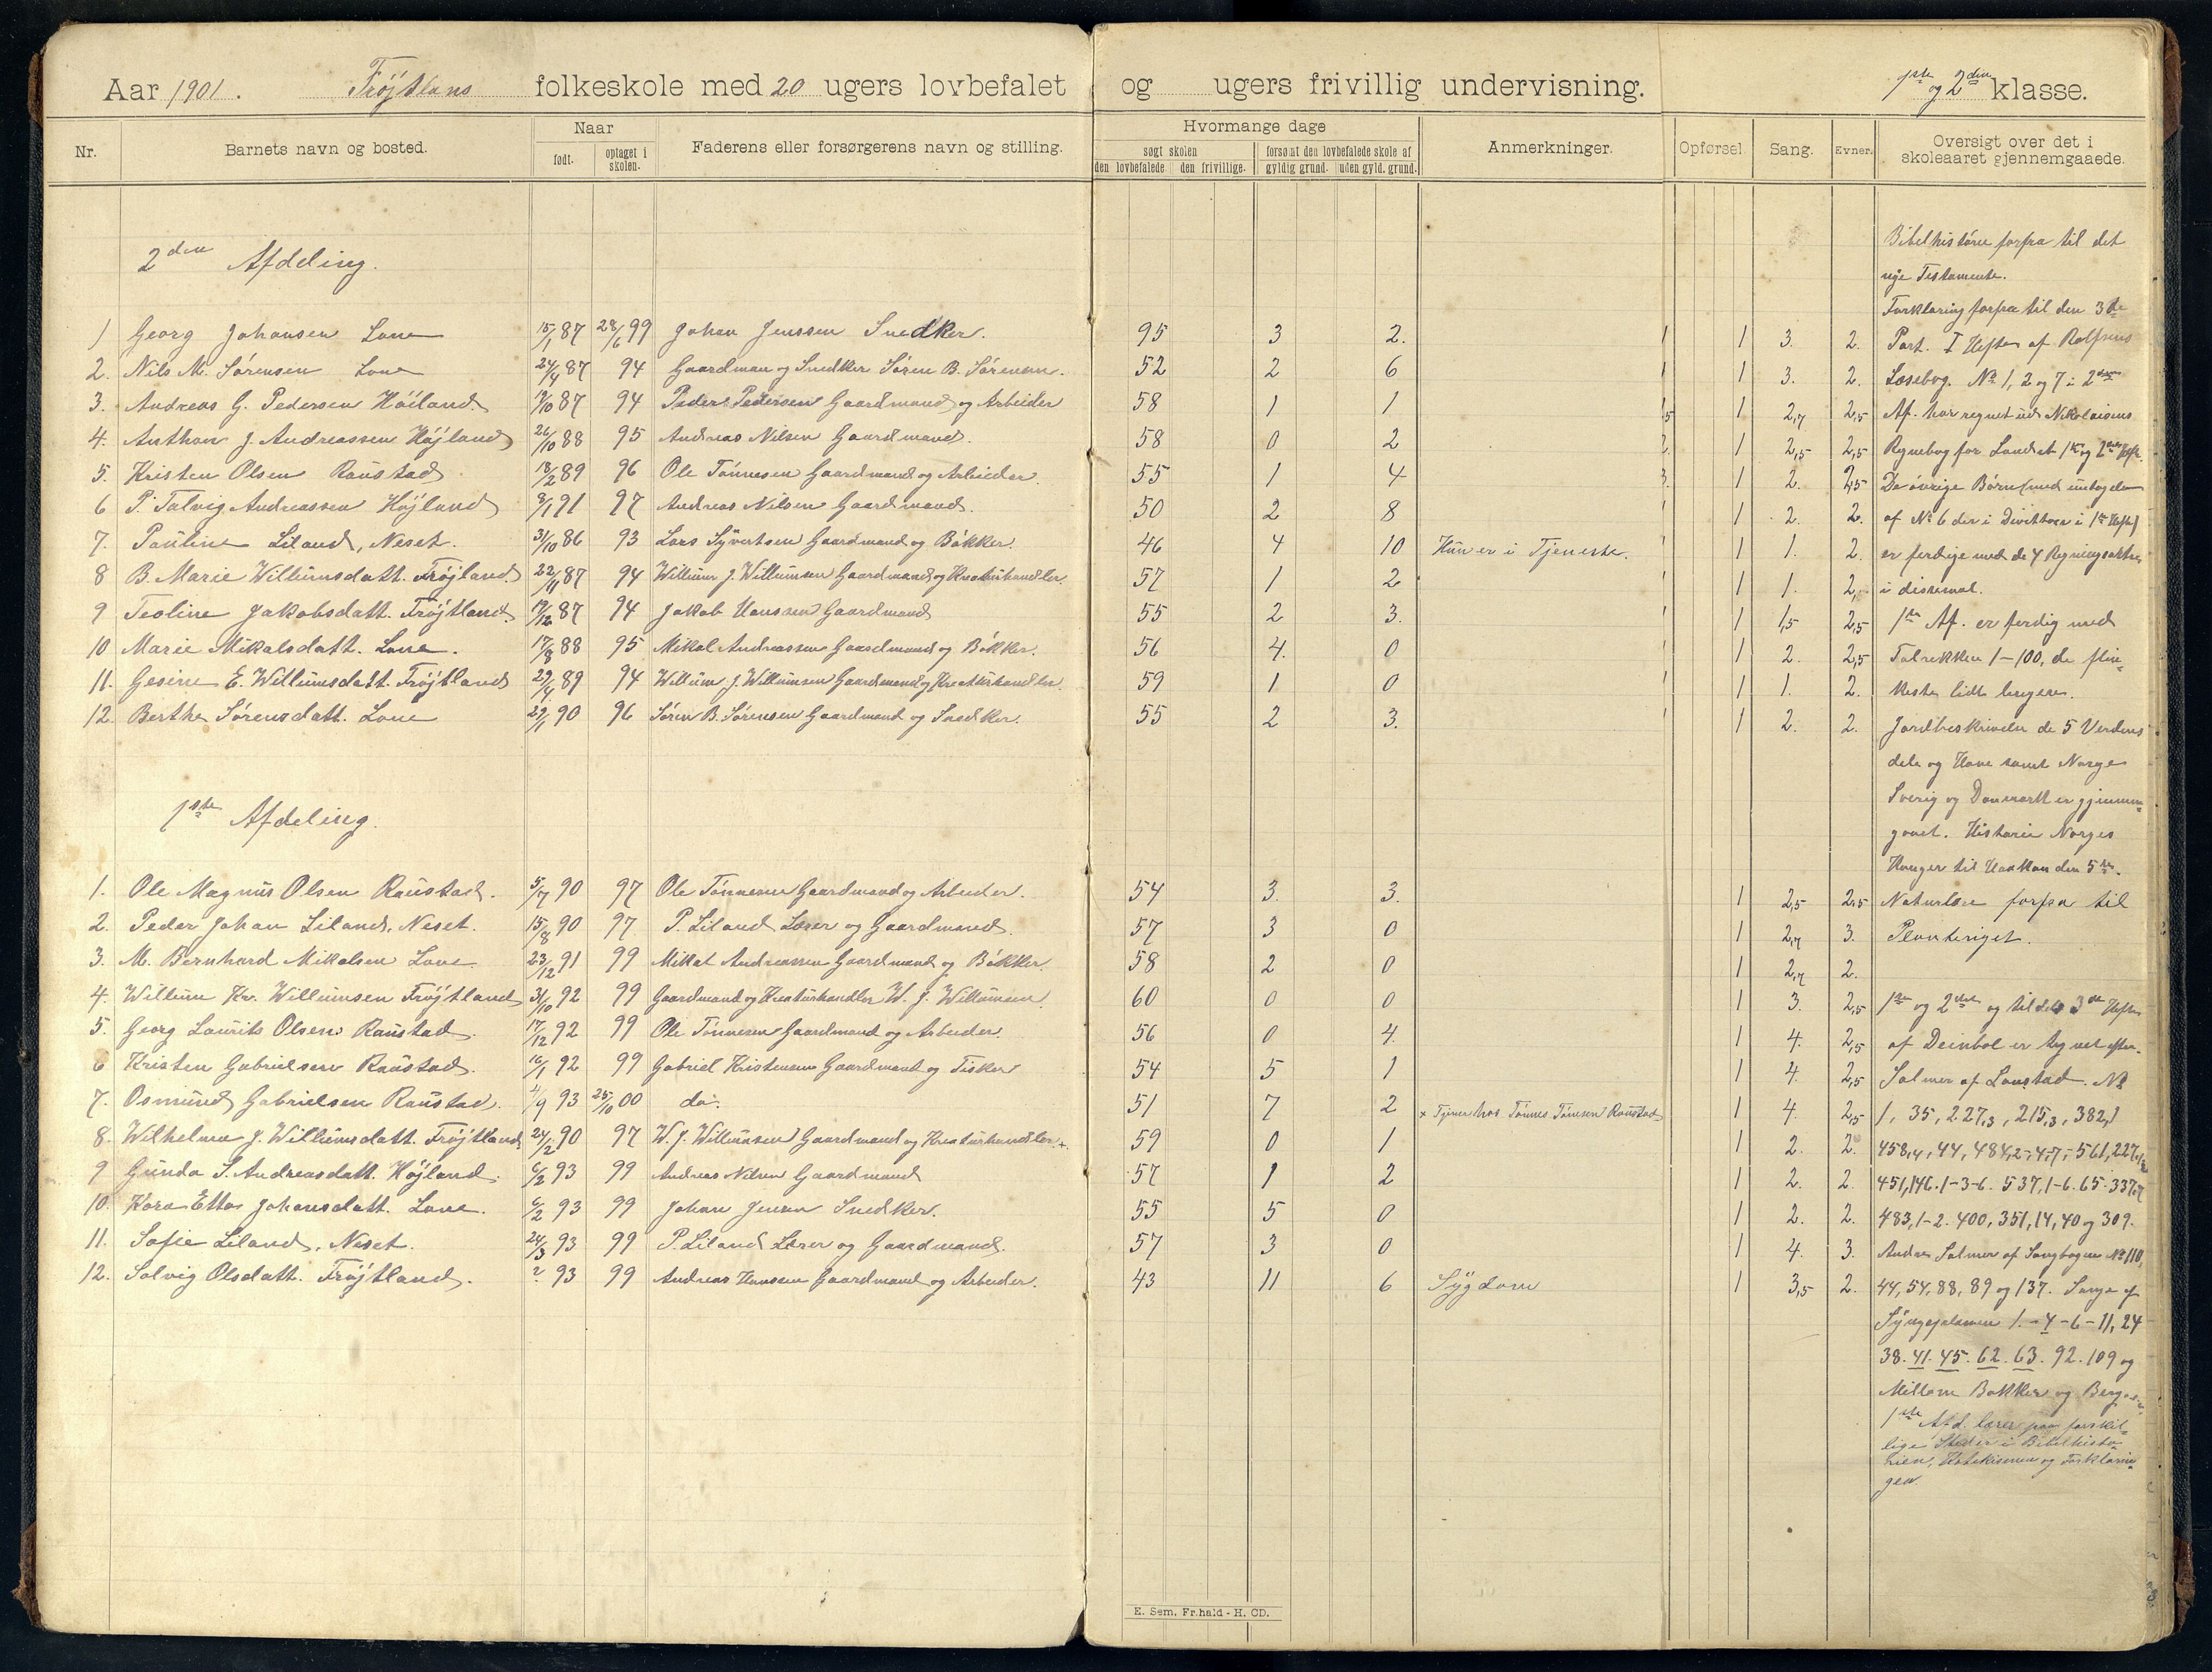 Aar 1901. Tröjtlans folkeskole med 20 ugers lovbefalet og ugers frivillig undervisning. 1ste og 2den klasse.
Nr. Barnets navn og bosted. Naar født. optaget i skolen. Faderens eller forsørgerens navn og stilling. Hvormange dage søgt skolen den lovbefalede den frivillige. forsømt den lovbefalede skole af gyldig grund. uden gyld. grund. Anmerkninger. Opførsel. Sang. Evner. Oversigt over det i skoleaaret gjennemgaaede.
2den Afdeling.
1 Georg Johansen Lone 15/1 87 28/6 99 Johan Jenssen Snedker. 95 3 2. 1 1 3. 2.
2. Nils M. Sørensen Lone 24/4 87 94 Gaardman og Snedker Søren B. Sørensen. 52 2 6 1 1 3. 2.
3. Andreas G. Pedersen Höiland. 19/10 87 94 Peder Pedersen Gaardmand og Arbeider 58 1 1 1,5 1 2,7 2,5
4. Anthon J. Andreassen Höjland 26/10 88 95 Andreas Nilsen Gaardmand. 58 0 2 2. 1 2,5 2,5
5. Kristen Olsen Raustad 18/2 89 96 Ole Tönnesen Gaardmand og Arbeider. 55 1 4 3. 1 2. 2,5
6 P. Salvig Andreassen Höjland 8/1 91 97 Andreas Nilsen Gaardmand. 50 2 8 1 1 2. 2.
7. Pauline Liland, Neset. 31/10 86 93 Lars Syvertsen Gaardmand og Bökker. 46 4 10 Hun er i Tjeneste. 1 1 1. 2.
8 B. Marie Willumsdatt. Tröjland. 22/11 87 94 Willum J. Willumsen Gaardmand og Kreaturhandler. 57 1 2 1 1 1. 2,
9 Teoline Jakobsdatt. Tröjtland 19/12 87 94 Jakob Hanssen Gaardmand 55 2 3. 1 1 1,5 2,5
10 Marie Mikalsdatt. Lone. 17/8 88 95 Mikal Andreassen Gaardmand og Bökker. 56 4. 0 1 1 2. 2,5
11. Gesine E. Willumsdatt. Tröjtland 29/4 89 94 Willum J. Willumsen Gaardmand og Kreaturhandler. 59 1 0 1 1 1. 2.
12. Berthe Sørensdatt. Lone 29/1 90 96 Søren B. Sørensen Gaardmand og Snedker. 55 2 3. 1 1 2. 2.
1ste Afdeling.
1. Ole Magnus Olsen Raustad. 5/7 90 97 Ole Tönnesen Gaardmand og Arbeider. 54 3. 3. 1 2,5 2,5
2. Peder Johan Liland, Neset. 15/8 90 97 P. Liland Lærer og Gaardmand. 57 3 0 1 2,7 3.
3. M. Bernhard Mikalsen Lone. 23/12 91 99 Mikal Andreassen Gaardmand og Bökker. 58 2 0 1 2,7 2.
4. Willum Kr. Willumsen Tröjtland 31/10 92 99 Gaardmand og Kreaturhandler W. J. Willumsen. 60 0 0 1 3. 2,5
5. Georg Laurits Olsen Raustad. 17/12 92 99 Ole Tönnesen Gaardmand og Arbeider. 56 0 4. 1 4. 2,5
6 Kristen Gabrielsen Raustad. 16/1 92 99 Gabriel Kristensen Gaardmand og Fisker 54 5 1 1 4. 2,5
7. Osmund Gabrielsen Raustad. 4/9 93 25/10 00 do. 51 7 2 × Tjener hos Tönnes Tönesen Raustad 1 4. 2,5
8. Wilhelma J. Willumsdatt. Tröjtland 24/2 90 97 W. J. Willumsen Gaardmand og Kreaturhandler. × 59 0 1 1 2. 2.
9 Gunda S. Andreasdatt. Höjland. 6/2 93 99 Andreas Nilsen Gaardmand 57 1 2 1 2. 2.
10. Kara Etta Johansdatt. Lone. 6/2 93 99 Johan Jensen Snedker. 55 5 0 1 2. 2.
11. Sofie Liland, Neset. 24/3 93 99 P. Liland Lærer og Gaardmand. 57 3 0 1 4. 3.
12. Solvig Olsdatt. Tröjtland. ? 93 99 Andreas Hanssen Gaardmand og Arbeider. 43 11 6 Sygdom 1 3,5 2.
Bibelhistorie forfra til det
nye Testamente.
Forklaring forfra til den 3die
Part. I Hefte af Rolfsens
Læsebog. No 1, 2 og 7 i 2den
Af. har regnet ud Nikolaisens
Regnebog for Landet 1ste og 2det Hefte.
De övrige Børn (med undtagelse
af No 6 der i Division i 1ste Hefte)
er ferdige med de 4 Regningsarter
i desimal.
1ste Af. er ferdig med
Talrekken 1-100, de fle-
ste lidt lengere.
Jordbeskrivelse de 5 Verdens
dele og Have samt Norge
Sverig og Danmark er gjennem-
gaaet. Historie Norges
Konger til Haakon den 5te.
Naturlære forfra til
Planteriget.
1ste og 2det og til det 3die Hefte
af Deinbol er tegnet efter.
Salmer af Lanstad. No
1, 35, 227,3, 215,3, 382,1
458,4, 44, 484,2-4,7-561, 227,
451, 146. 1-3-6. 537, 1-6. 65. 337,
483, 1-2. 400, 351, 14, 40 og 309.
Andre Salmer af Sangbogen No 110,
44, 54, 88, 89 og 137. Sange af
1.-4-6-11, 24
38. 41. 45. 62. 63. 92. 109 og
Millom Bakker og Berg
1ste Afd. lærer paa forskjel-
lige Steder i Bibelhisto-
rien, Katekismen og Forklarin-
gen.
E. Sem. Fr.hald - H. CD.